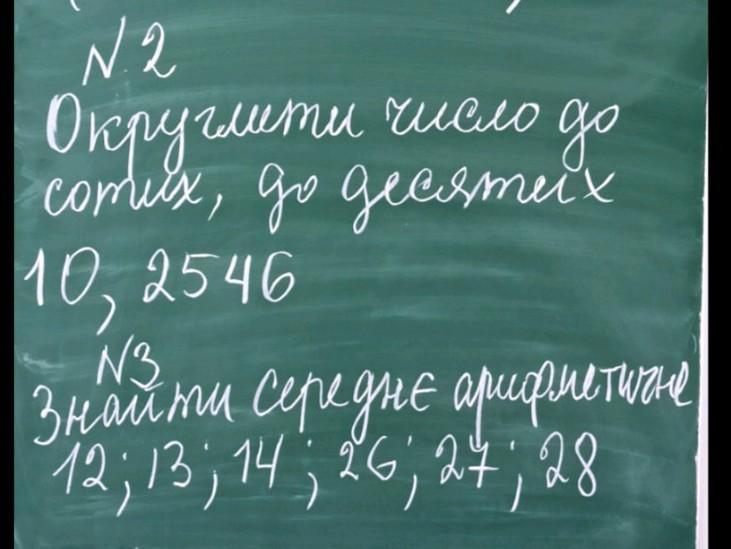 N 2
Округлити число до
сотих, до десятих
10, 2546
N3
Знайти середнє арифметичне
12; 13; 14; 26; 27; 28